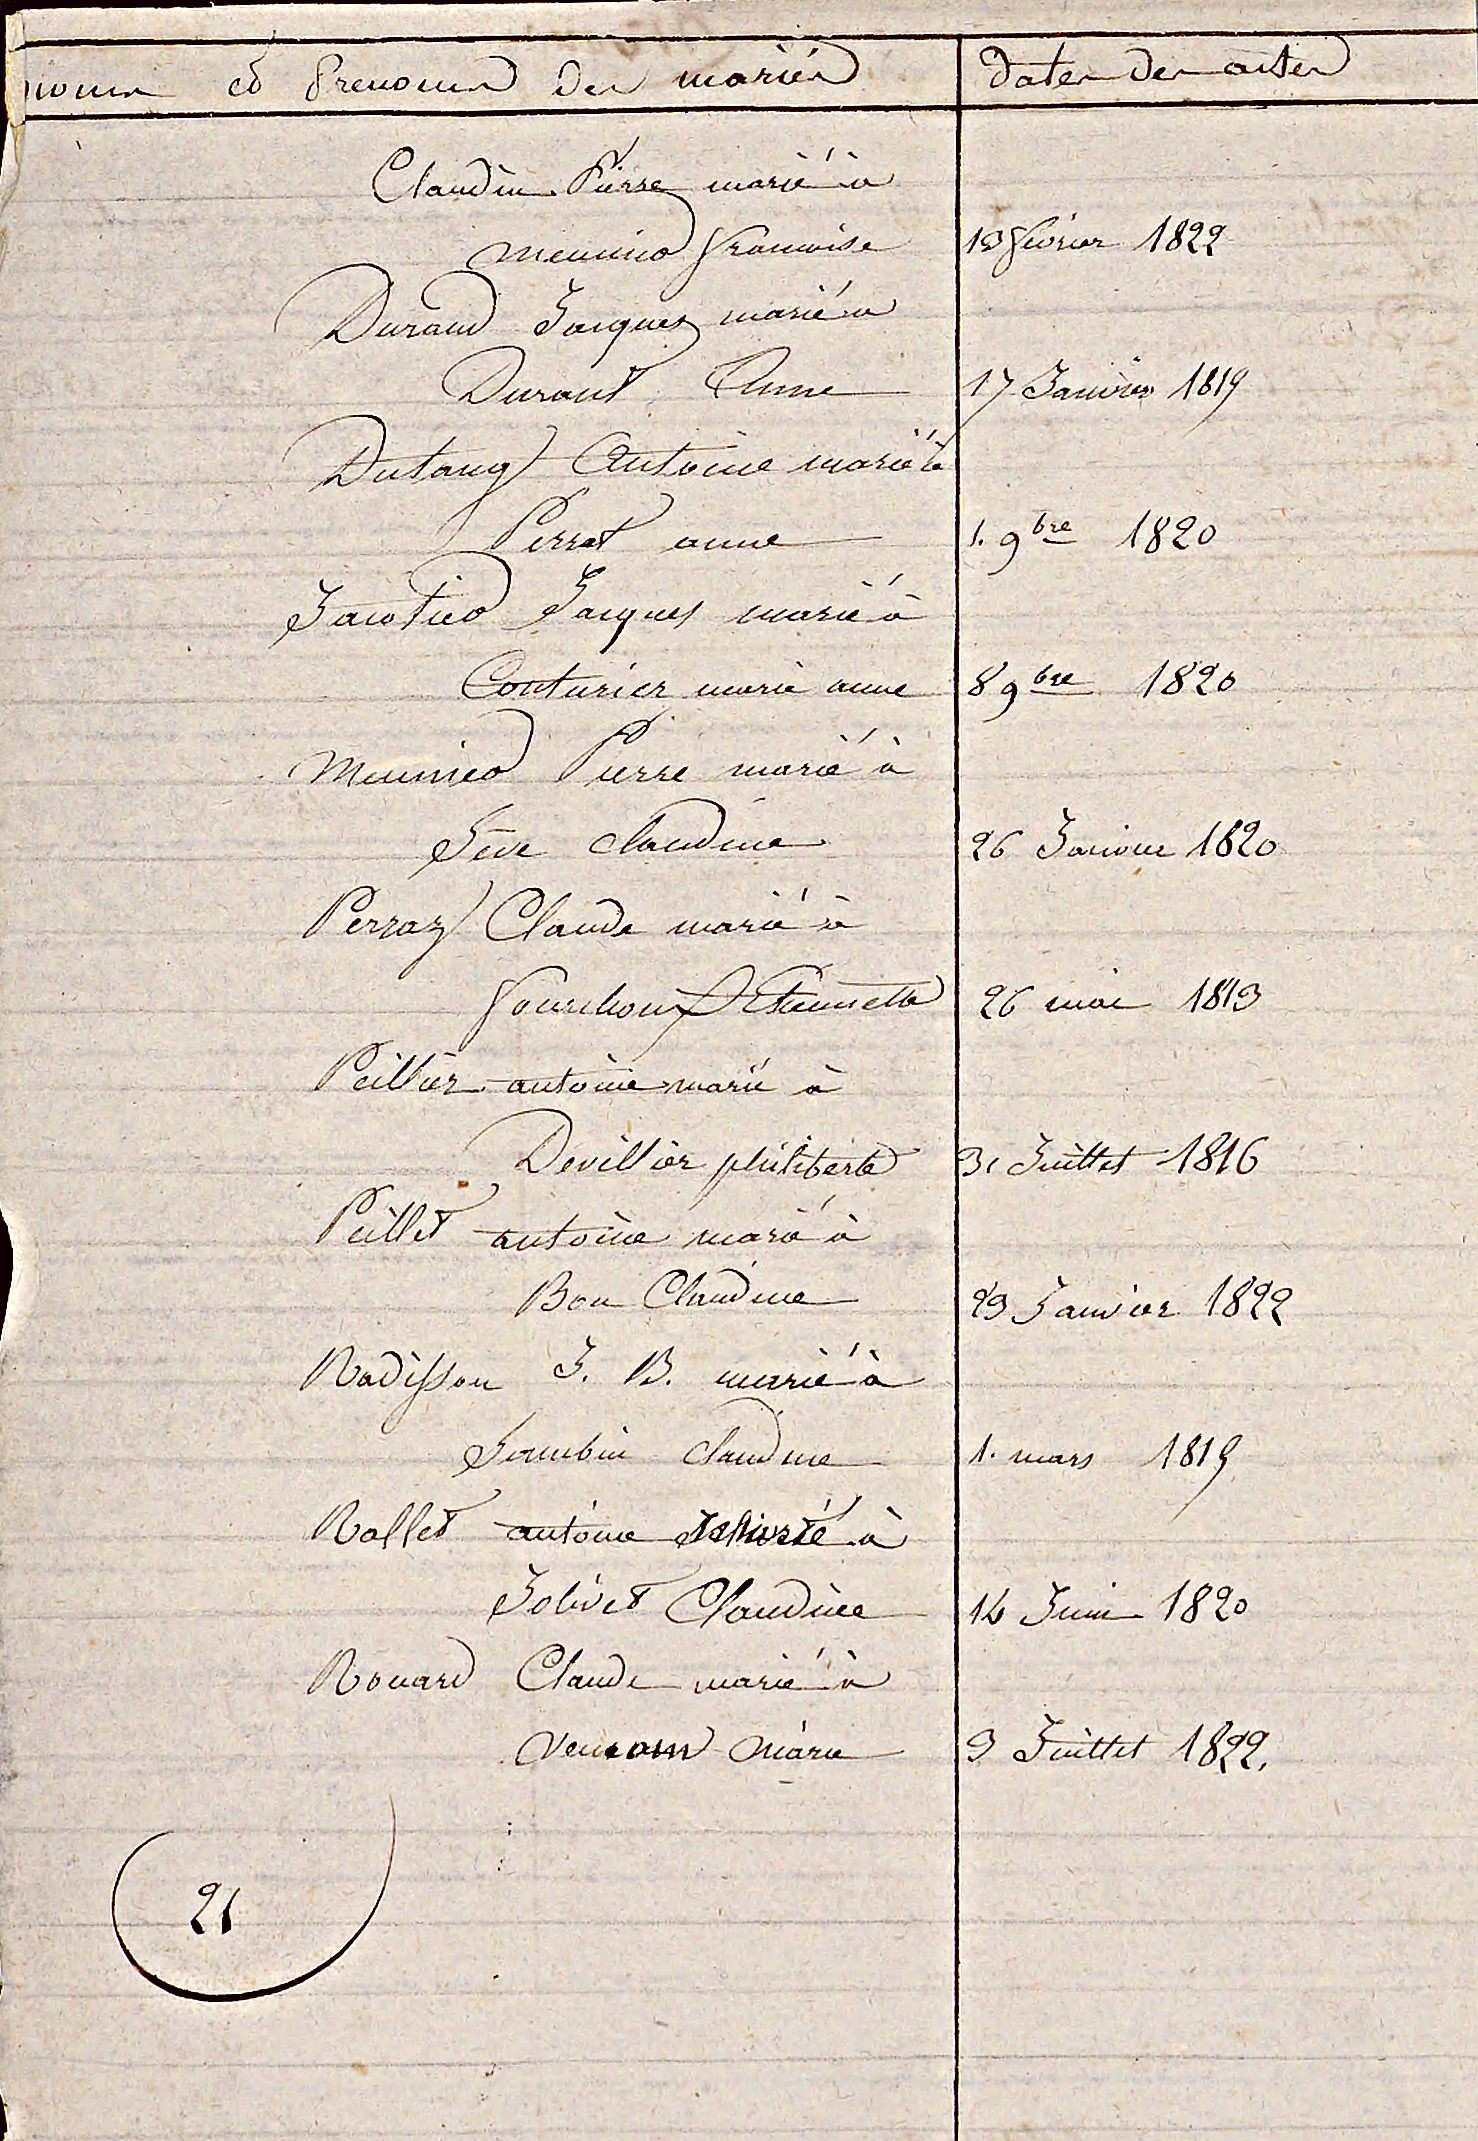 noms et Prenoms des mariés dates des actes
Claudin Pierre marié à
meunier francoise 13 fevrier 1822
Durand Jacques marié à
Durant Anne 17 Janvier 1819
Dutang Antoine marié à
Perret anne 1. 9bre 1820
Jacotier Jacques marié à
Couturier marie anne 8 9bre 1820
meunier Pierre marié à
Séve Claudine 26 Janvier 1820
Perraz Claude marié à
Etiennette 26 mai 1813
Peillier antoine marié à
Devillier philiberte 31 Juillet 1816
Peillet antoine marié à
Bon Claudine 23 Janvier 1822
Radisson J. B. marié à
Jambin Claudine 1. mars 1819
Rollet antoine à
Jolivet Claudine 14 Juin 1820
Rouard Claude marié à
marie 3 Juillet 1822.
21